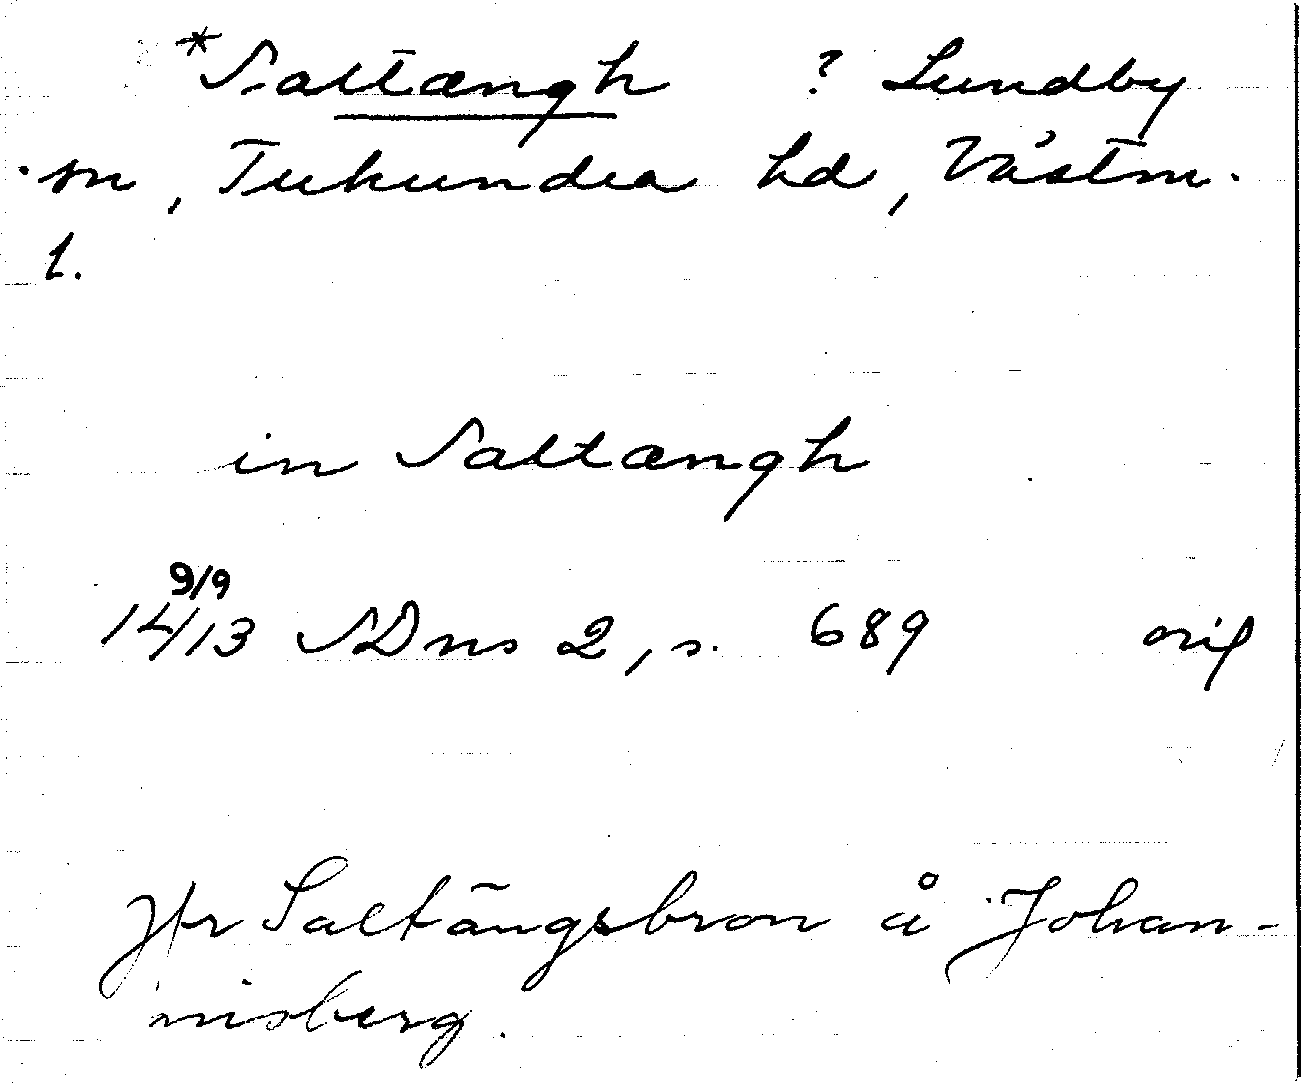 *Saltængh ? Lundby
sn, Tuhundra hd, Västm.
l.
in Saltængh
9/9
14/13 SDns 2, s. 689 orig
Jfr Saltängsbron å Johan-
nisberg.